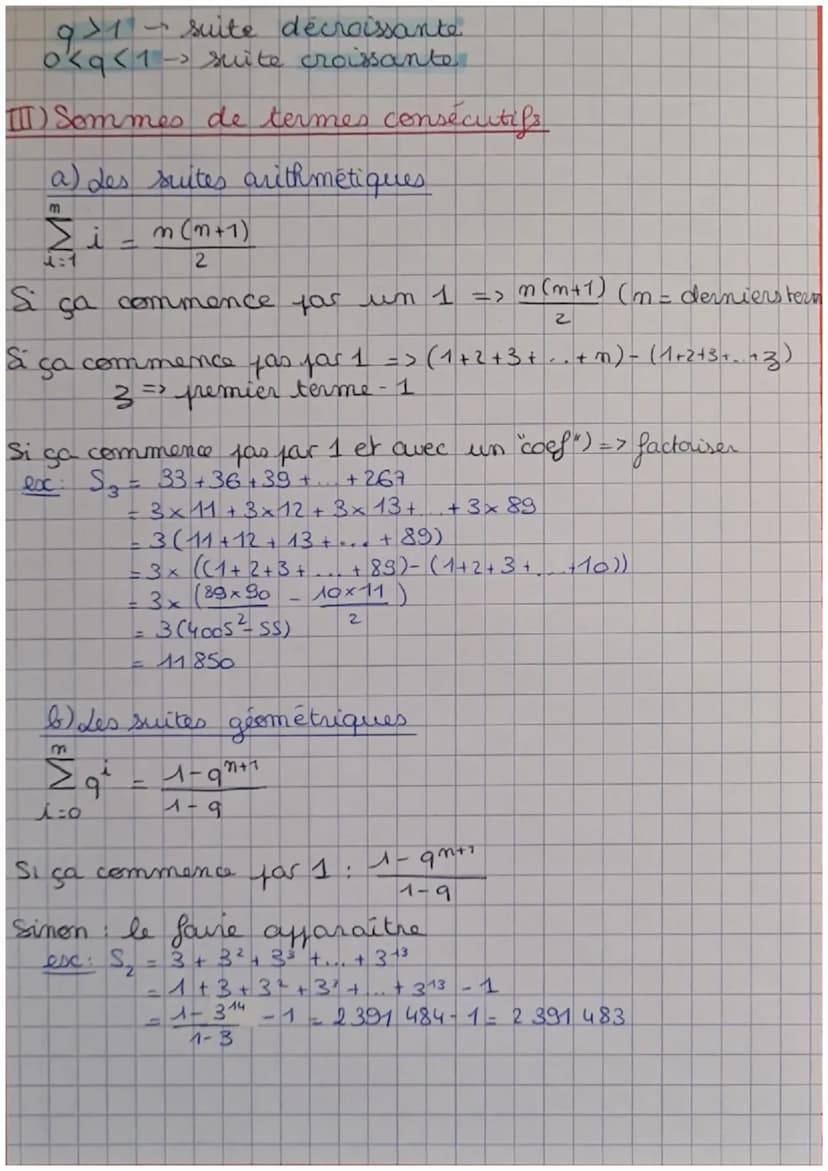 q > 1 → suite décroissante.
0 < q < 1 → suite croissante.
III) Sommes de termes consécutifs
a) des suites arithmétiques
n
∑ i = n(n+1)/2
i=1
Si ça commence par un 1 => n(n+1)/2 (n = derniers term
Si ça commence pas par 1 => (1+2+3+...+n) - (1+2+3+...+z)
z => premier terme - 1
Si ça commence pas par 1 et avec un "coef") => factoriser
ex: S₃ = 33 + 36 + 39 + ... + 267
= 3×11 + 3×12 + 3×13 + ... + 3×89
= 3(11 + 12 + 13 + ... + 89)
= 3× ((1+2+3+...+89) - (1+2+3+...+10))
= 3× (89×90/2 - 10×11/2)
= 3(4005 - 55)
= 11 850
b) des suites géométriques
n
∑ qⁱ = (1-qⁿ⁺¹)/(1-q)
i=0
Si ça commence par 1 : (1-qⁿ⁺¹)/(1-q)
Sinon : le faire apparaître
ex: S₂ = 3 + 3² + 3³ + ... + 3¹³
= 1 + 3 + 3² + 3³ + ... + 3¹³ - 1
= (1-3¹⁴)/(1-3) - 1 = 2 391 484 - 1 = 2 391 483